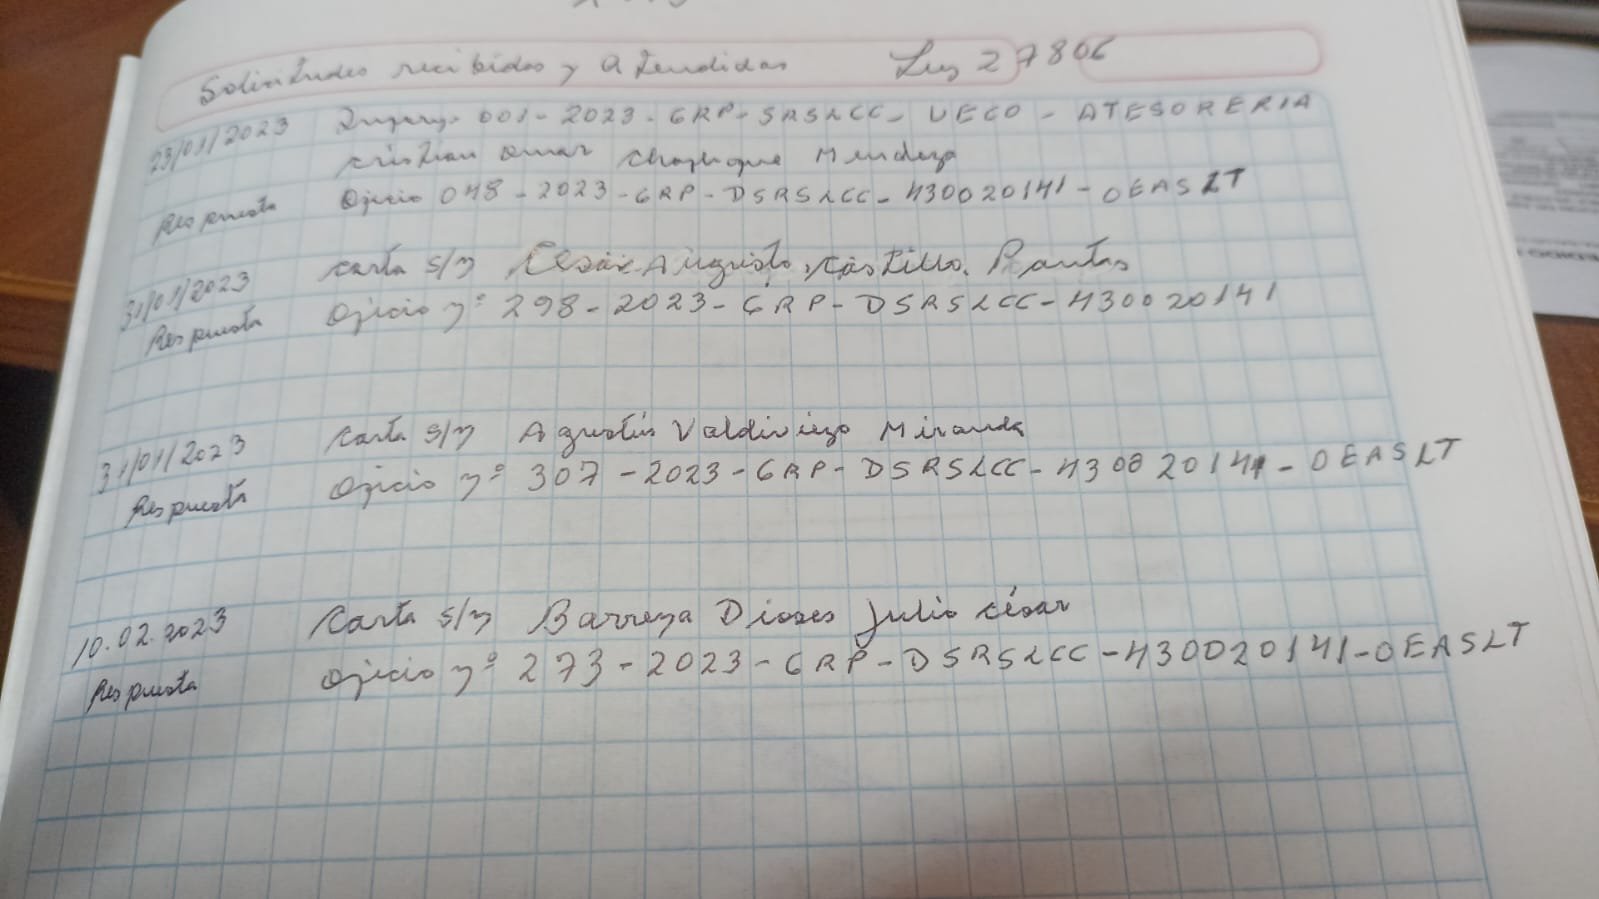 Solicitudes recibidas y Atendidas Ley 27806
23/01/2023 Informe 001-2023-GRP-SRSLCC-UECO-ATESORERIA
Cristian Omar Chapilique Mendoza
Respuesta Oficio 048-2023-GRP-DSRSLCC-430020141-OEASLT
31/01/2023 Carta S/n César Augusto Castillo Rantas
Respuesta Oficio nº 298-2023-GRP-DSRSLCC-430020141
31/01/2023 Carta S/n Agustín Valdiviezo Miranda
Respuesta Oficio nº 307-2023-GRP-DSRSLCC-430020141-OEASLT
10.02.2023 Carta S/n Barreza Dioses Julio César
Respuesta Oficio nº 273-2023-GRP-DSRSLCC-430020141-OEASLT